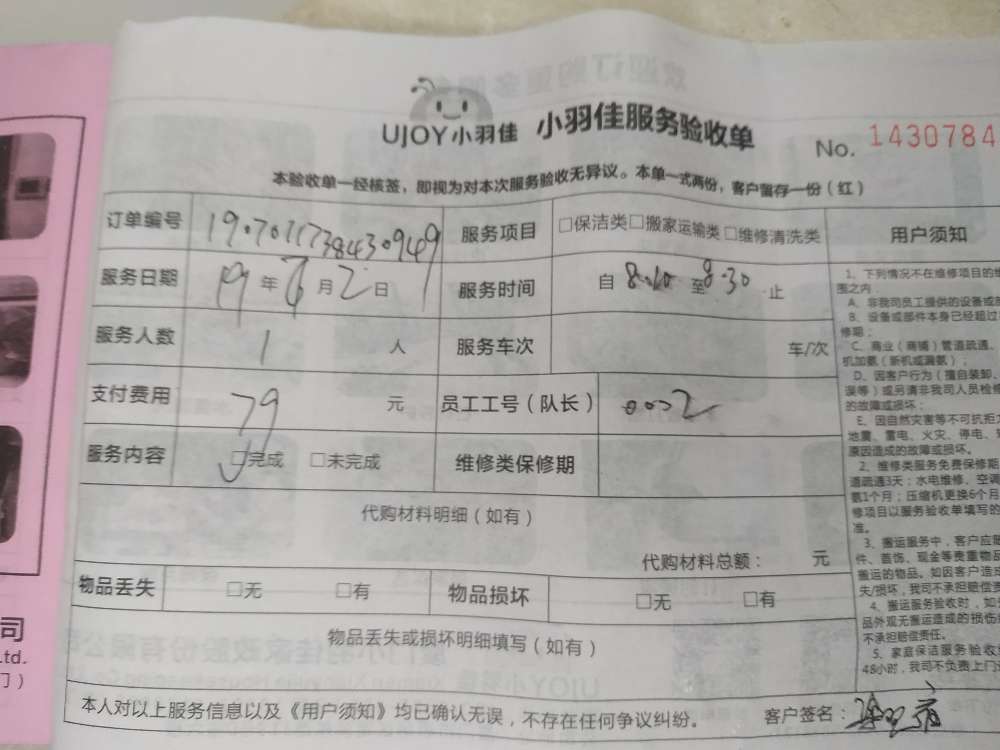 UJOY小羽佳 小羽佳服务验收单
No. 1430784
本验收单一经核签，即视为对本次服务验收无异议。本单一式两份，客户留存一份（红）
订单编号 服务项目 □保洁类□搬家运输类□维修清洗类 用户须知
服务日期 19年 月2日 服务时间 自 至8:30止
服务人数 1 人 服务车次 车/次
支付费用 79 元 员工工号（队长） 0002
服务内容 □完成 □未完成 维修类保修期
代购材料明细（如有）
代购材料总额： 元
物品丢失 □无 □有 物品损坏 □无 □有
物品丢失或损坏明细填写（如有）
本人对以上服务信息以及《用户须知》均已确认无误，不存在任何争议纠纷。 客户签名：
1、下列情况不在维修项目的
围之内：
A、非我司员工提供的设备或
B、设备或部件本身已经超过
修期；
C、商业（商铺）管道疏通、
机加氨（新机或漏氨）；
D、因客户行为（擅自装卸、
误等）或另请非我司人员检
的故障或损坏；
E、因自然灾害等不可抗拒
地震、雷电、火灾、停电、
原因造成的故障或损坏。
2、维修类服务免费保修期
道疏通3天；水电维修、空调
氨1个月；压缩机更换6个月
修项目以服务验收单填写的
准。
3、搬运服务中，客户应
件、首饰、现金等贵重物品
搬运的物品。如因客户造
失/损坏，我司不承担赔偿
4、搬运服务验收时，如
品外观无搬运造成的损伤
不承担赔偿责任。
5、家庭保洁服务验收
48小时，我司不负责上门
司
td.
门）